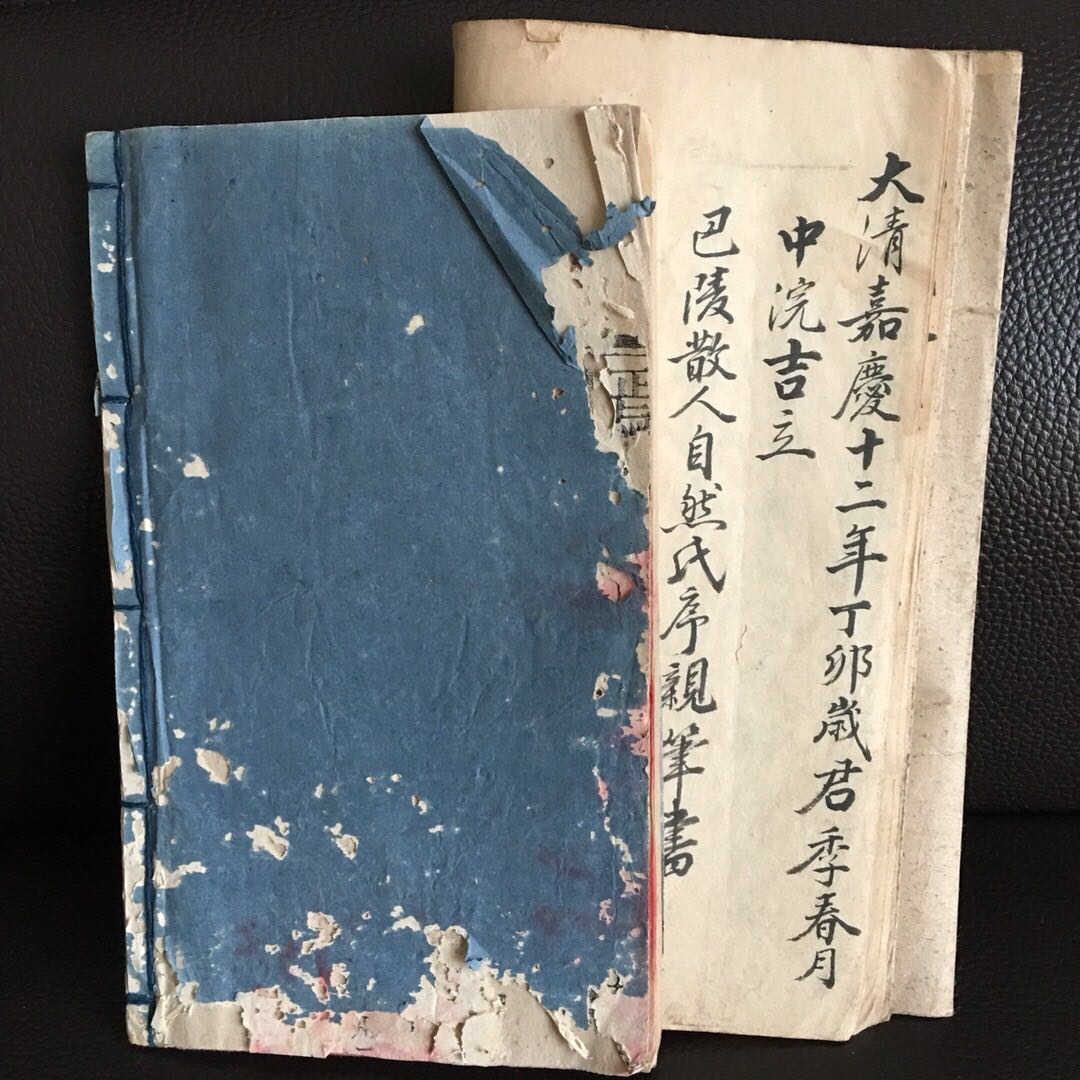 大清嘉慶十二年丁卯歲君季春月
中浣吉立
巴陵散人自然氏序親筆書